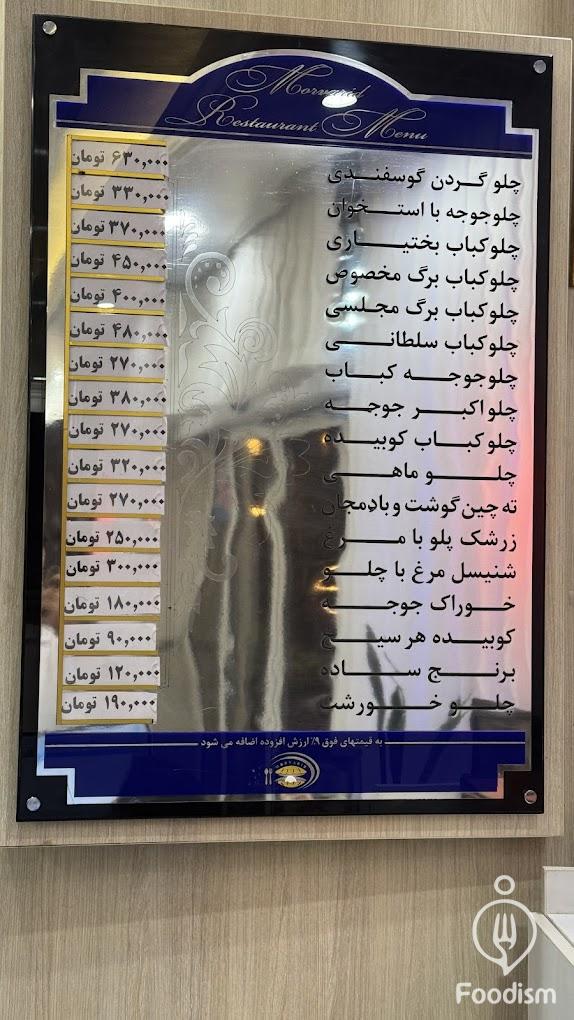 Morvarid
Restaurant Menu
چلو گردن گوسفندی ۶۳۰,۰۰۰ تومان
چلوجوجه با استخوان ۳۳۰,۰۰۰ تومان
چلوکباب بختیاری ۳۷۰,۰۰۰ تومان
چلوکباب برگ مخصوص ۴۵۰,۰۰۰ تومان
چلوکباب برگ مجلسی ۴۰۰,۰۰۰ تومان
چلوکباب سلطانی ۴۸۰,۰۰۰ تومان
چلوجوجه کباب ۲۷۰,۰۰۰ تومان
چلو اکبر جوجه ۳۸۰,۰۰۰ تومان
چلوکباب کوبیده ۲۷۰,۰۰۰ تومان
چلو ماهی ۳۲۰,۰۰۰ تومان
ته چین گوشت و بادمجان ۲۷۰,۰۰۰ تومان
زرشک پلو با مرغ ۲۵۰,۰۰۰ تومان
شنیسل مرغ با چلو ۳۰۰,۰۰۰ تومان
خوراک جوجه ۱۸۰,۰۰۰ تومان
کوبیده هر سیخ ۹۰,۰۰۰ تومان
برنج ساده ۱۲۰,۰۰۰ تومان
چلو خورشت ۱۹۰,۰۰۰ تومان
به قیمتهای فوق ۹٪ ارزش افزوده اضافه می شود
Foodism